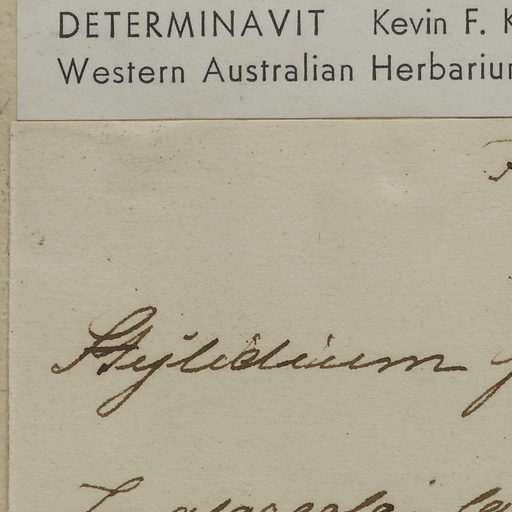 DETERMINAVIT Kevin F. K
Western Australian Herbariu
Stylidium